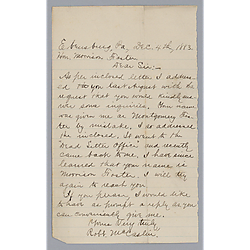 Ebensburg, Pa, Dec. 4th, 1883.
Hon. Morrison Foster
Dear Sir:-
As per inclosed letter I address-
ed to you last August with the
request that you would kindly ans-
wer some inquiries. Your name
was given me as Montgomery Fos-
ter by mistake. I so addressed
the inclosed. It went to the
Dead Letter Office and recently
came back to me. I have since
learned that your name is
Morrison Foster. I will try
again to reach you.
If you please, I would like
to have as prompt a reply as you
can conveniently give me.
Yours Very truly
Robt McCaslin